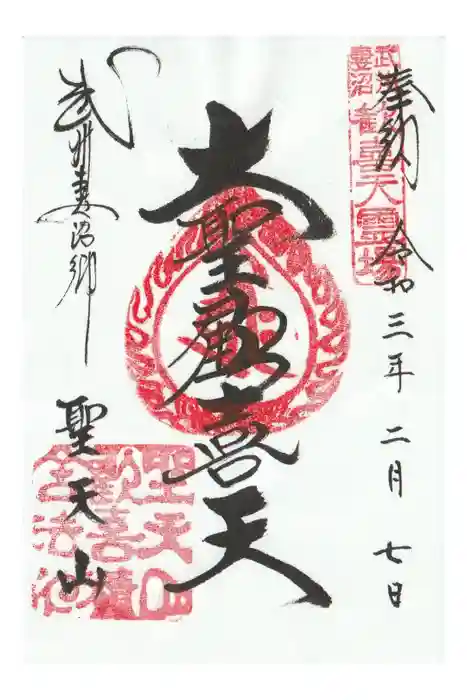 奉納 令和三年二月七日
武州妻沼
歓喜天霊場
大聖歓喜天
武州妻沼郷
聖天山
聖天山
歓喜